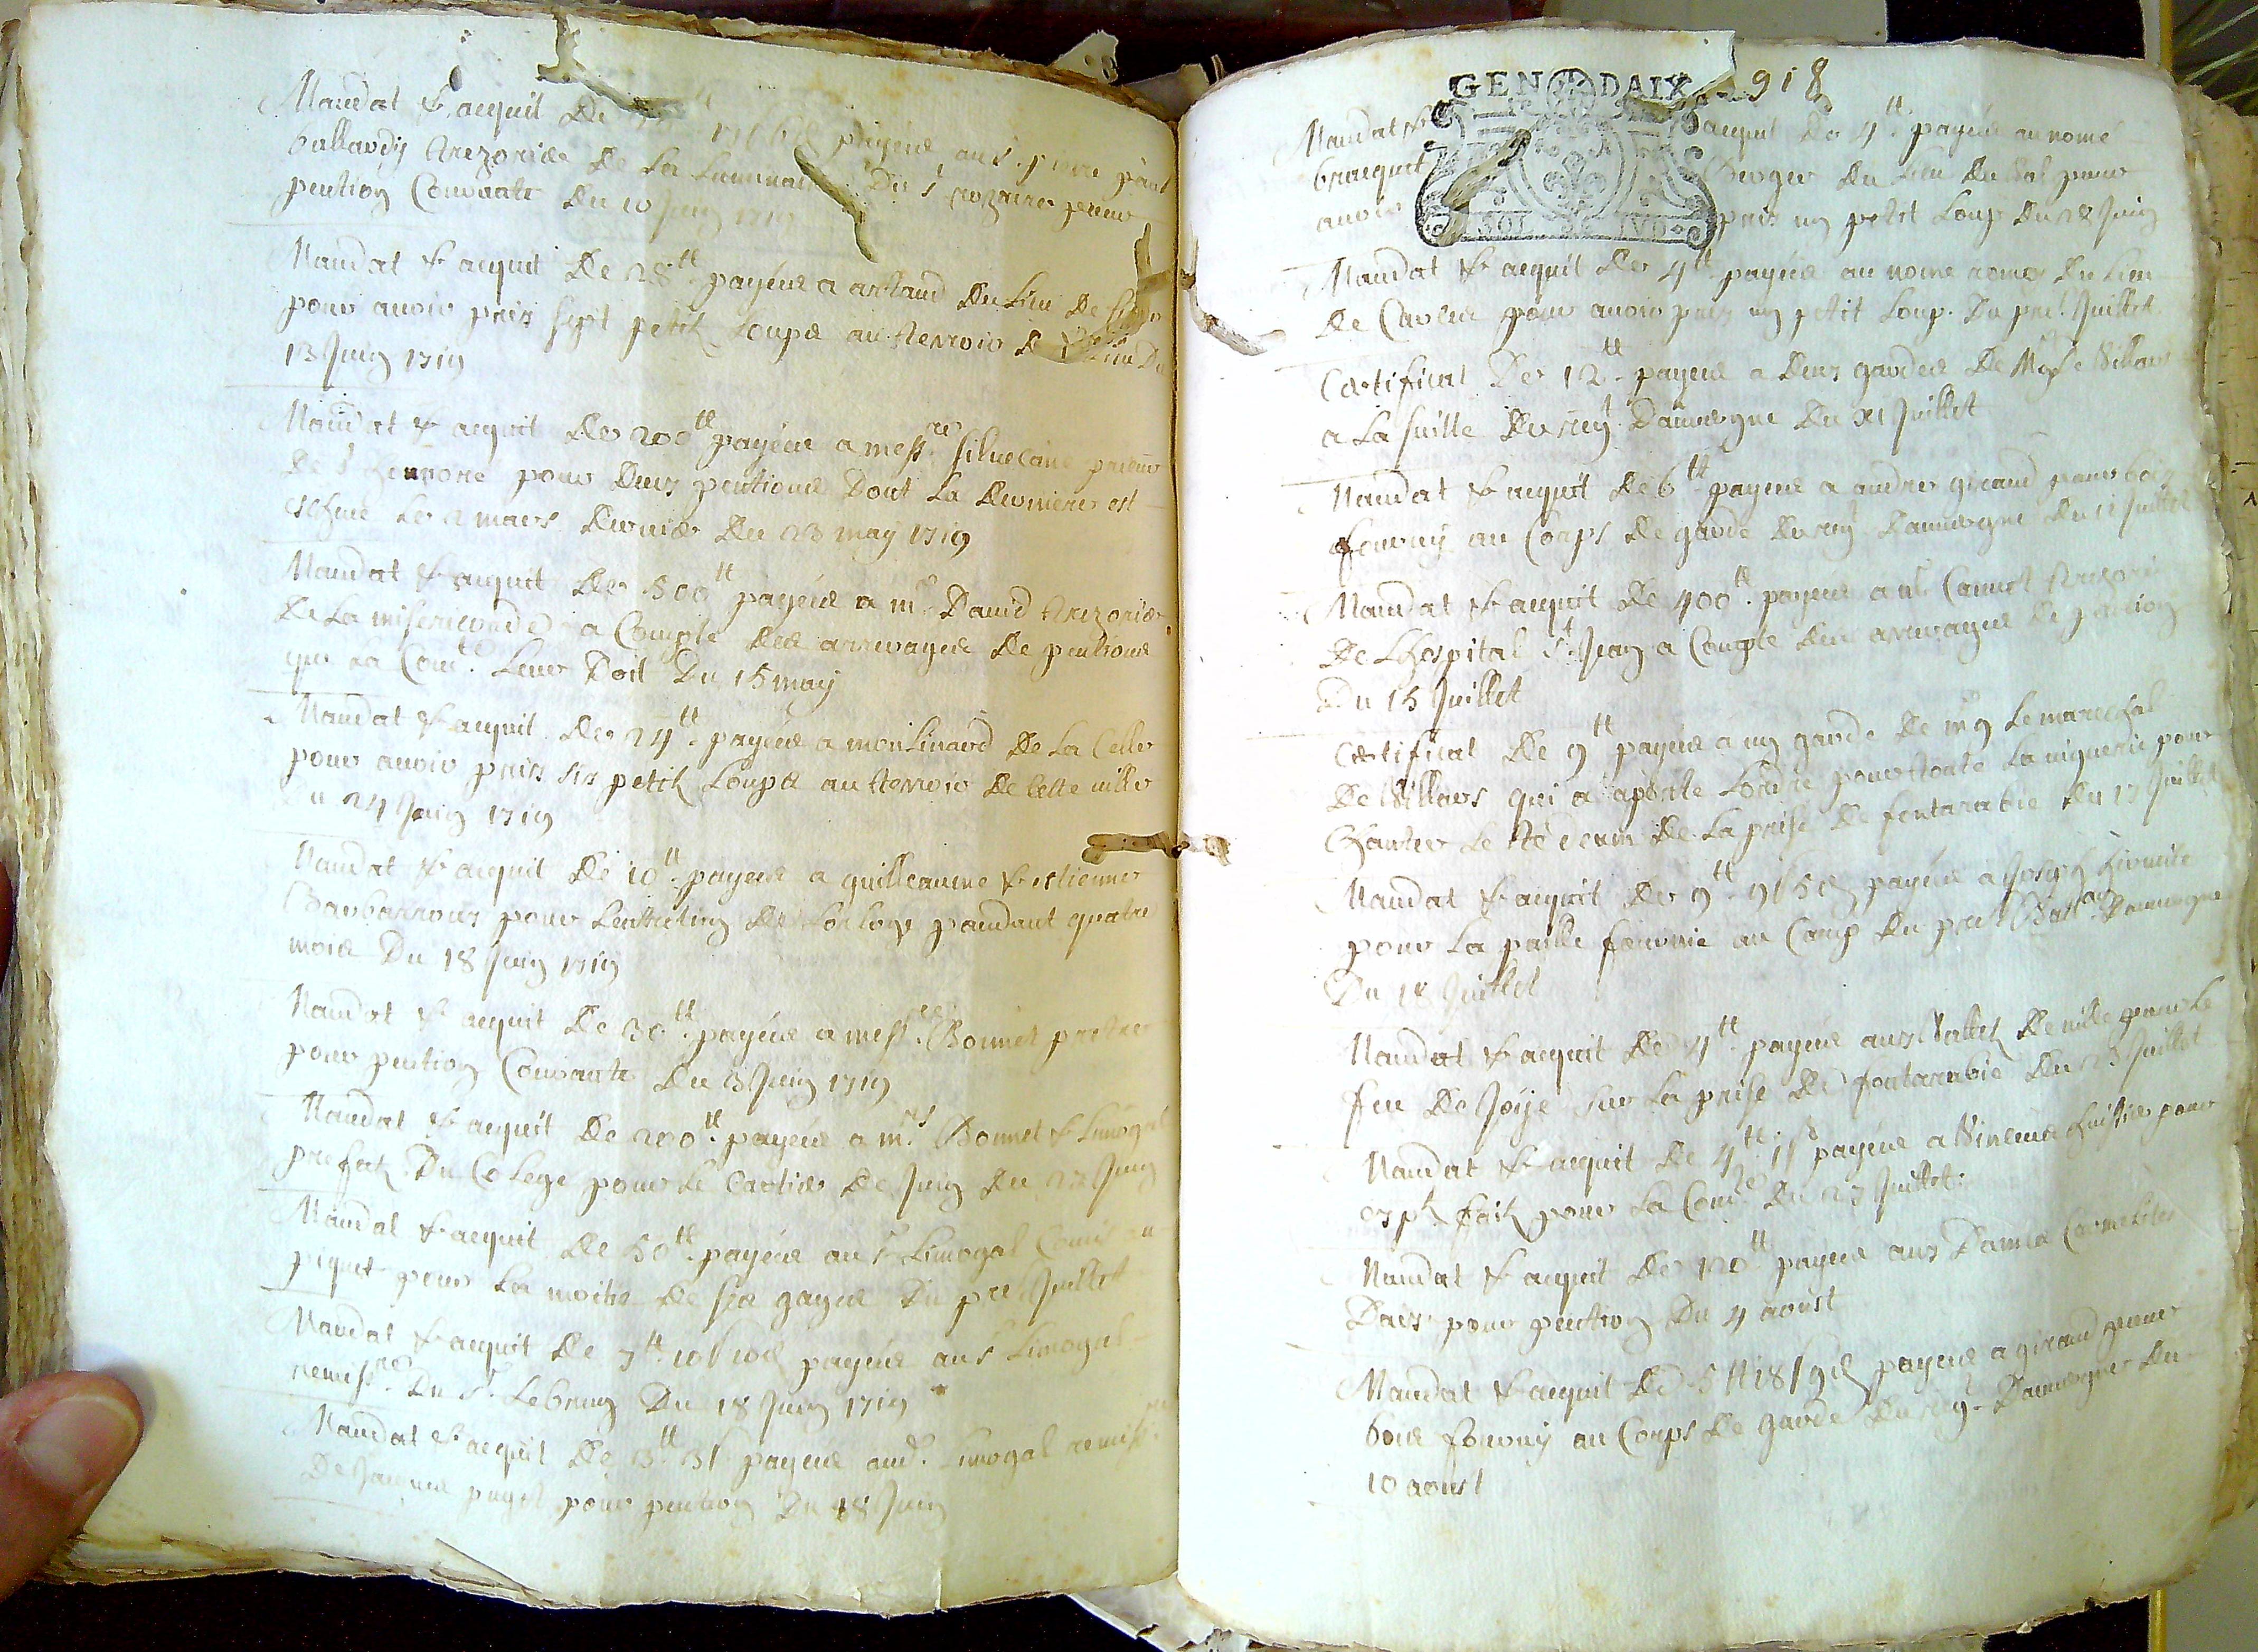 Mandat & acquit De payéus au s.
ballardy trezorier De La Luminaire Du st rozaire pour
pention Courante Du 10 Juin 1719
Mandat & acquit De 28tt payéus a artaud Du Lieu De
pour avoir pris sept petitz Loups au terroir
13 Juin 1719
Mandat & acquit De 200tt payéus a messre silvecane prieur
De st honnoré pour Deux pentions Dont La Derniere est
escheue Le 2 mars Dernier Du 23 may 1719
Mandat & acquit De 500tt payéus a mr David trezorier
De La misericorde a Compte Des arreyages De pentions
que La Comté Leur Doit Du 15 may
Mandat & acquit De 24tt payéus a monlinard De La Celle
pour avoir pris six petitz Loups au terroir De Cette ville
Du 24 Juin 1719
Mandat & acquit De 10tt payéus a guilleaume & estienne
Barbarroux pour Lentretien De Lorloge pandant quatre
mois Du 18 Juin 1719
Mandat & acquit De 30tt payéus a messre Bonnet pretre
pour pention Courante Du 3 Juin 1719
Mandat & acquit De 200tt payéus a mrs Bonnet & Limogal
prefetz Du Colege pour Le Cartier De Juin Du 23 Juin
Mandat & acquit De 50tt payéus au sr Limogal Comis au
piquet pour La moitie De ses gages Du pre Juillet
Mandat & acquit De 7tt 10s 10d payéus au sr Limogal
remissre Du Sr Lebrun Du 18 Juin 1719
Mandat & acquit De 3tt 3s payéus aud. Limogal remissre
De Jaumes puget pour pention Du 18 Juin
GEN DAIX 918
Mandat & acquit De 4tt payéus au nomé
braquet Berger Du Lieu Du Val pour
avoir pris un petit Loup Du 28 Juin
SOL
Mandat & acquit De 4tt payéus au nomé Du Lieu
De Carces pour avoir pris un petit Loup Du pre Juillet
Certificat De 12tt payéus a Deux gardes De Mgr Le Villars
a La suitte Du reg Dauvergne Du Juillet
Mandat & acquit De 6tt payéus a andre giraud pour bois
fourny au Corps De garde Du reg Dauvergne Du 11 Juillet
Mandat & acquit De 400tt payéus a Mr Cannet trezorier
De Lhospital St Jean a Compte Des arreyages De pention
Du 15 Juillet
Certificat De 9tt payéus a un garde De mg Le marechal
De Villars qui a aporté Lordre pour toute La viguerie pour
Chanter Le te deum De La prise De fontarabie Du 17 Juillet
Mandat & acquit De 9tt 9s 5d payéus a Joseph hermite
pour La paille fournie au Camp Du pre Batton Dauvergne
Du 18 Juillet
Mandat & acquit De 4tt payéus aux Valletz De ville pour Le
feu De Joÿe sur La prise De fontarabie Du 23 Juillet
Mandat & acquit De 4tt 1s payéus a Vincens huissier pour
exptz faitz pour La Comté Du 27 Juillet
Mandat & acquit De 120tt payéus aux Dames Carmelites
Daix pour pention Du 4 aoust
Mandat & acquit De 5tt 18s 9d payéus a giraud pour
bois fourny au Corps De garde Du reg Dauvergne Du
10 aoust